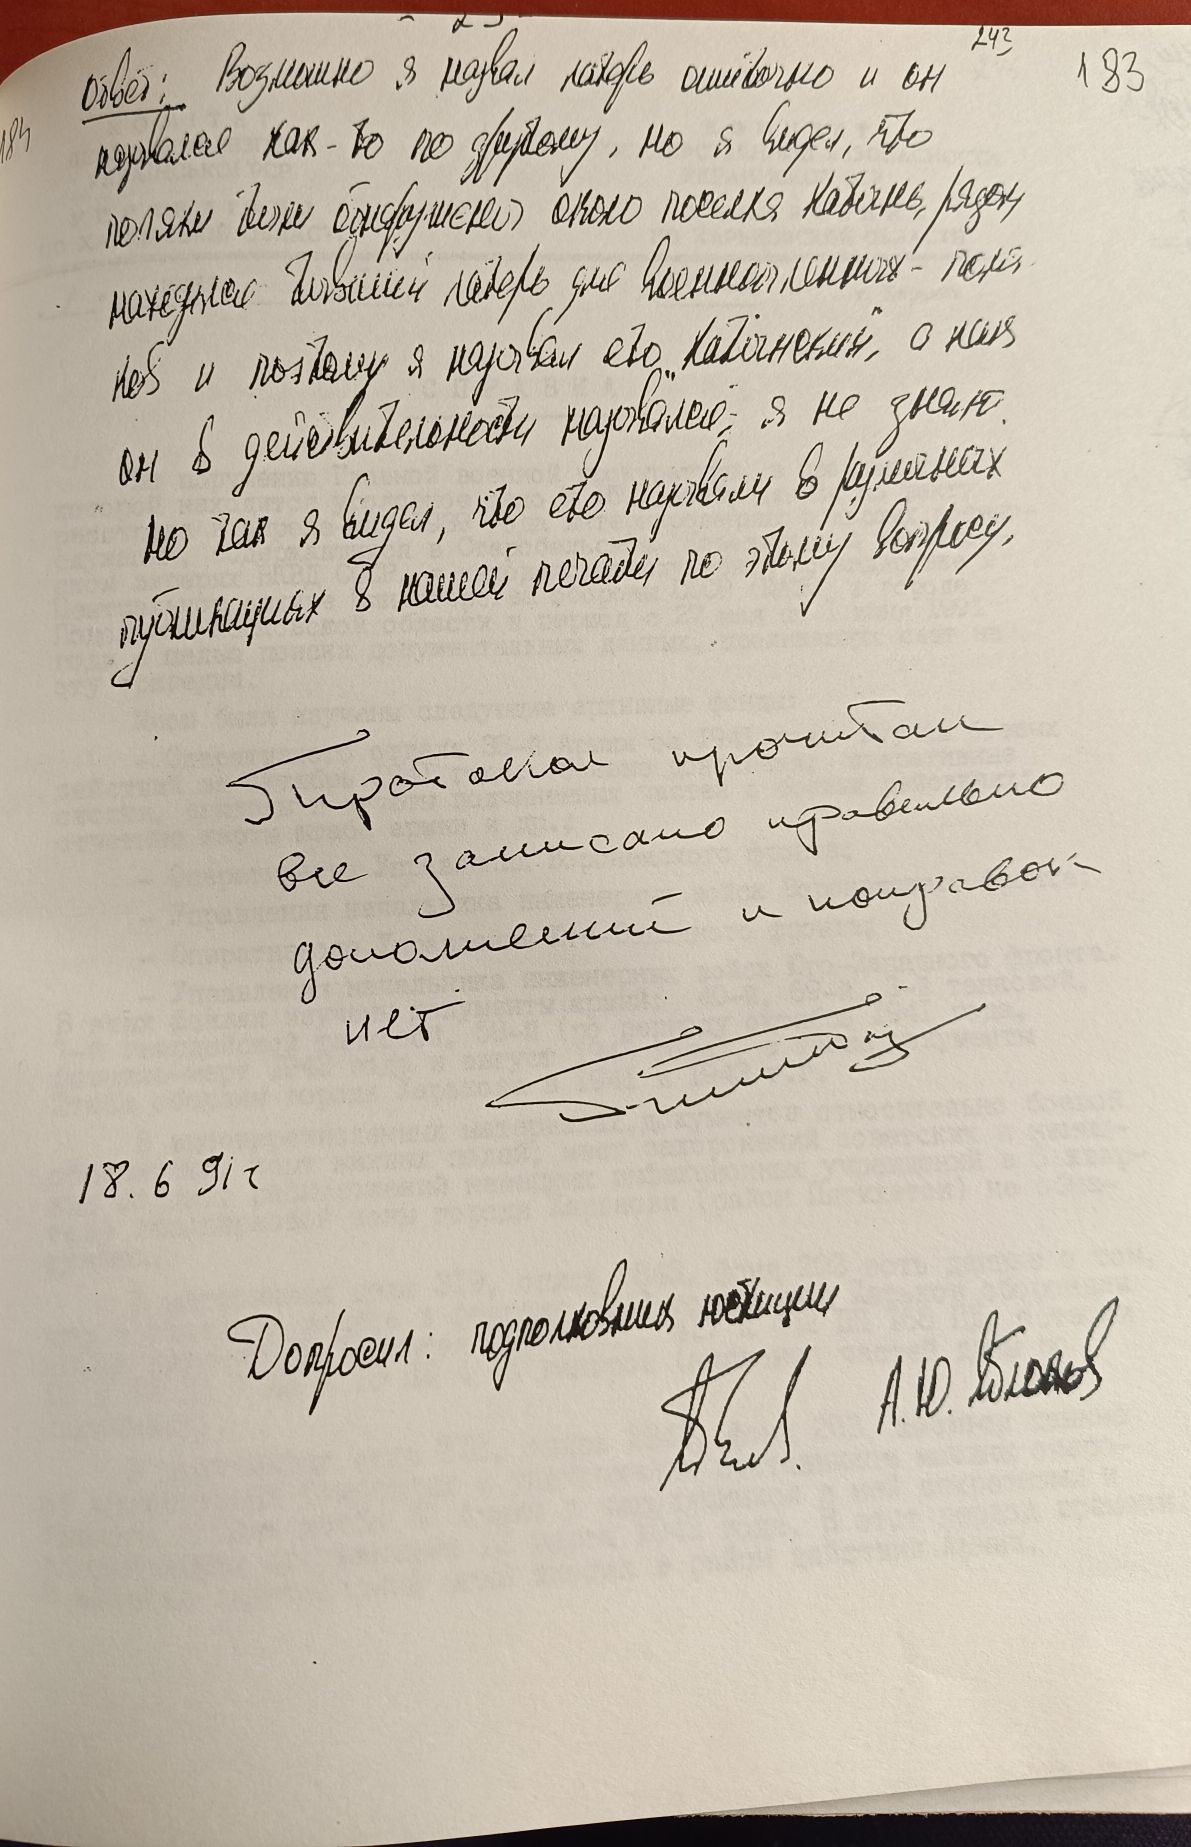 - 23 -
243
183
184
Ответ: Возможно я назвал лагерь ошибочно и он
назывался как-то по другому, но я видел, что
поляки были обнаружены около поселка Катынь, рядом
находился бывший лагерь для военнопленных - поля-
ков и поэтому я назвал его "Катынский", а как
он в действительности назывался, я не знаю.
Но так я видел, что его называли в различных
публикациях в нашей печати по этому вопросу.
Протокол прочитан
все записано правильно
дополнений и поправок
нет
18. 6 91 г
Допросил: подполковник юстиции
А.Ю. Яблоков